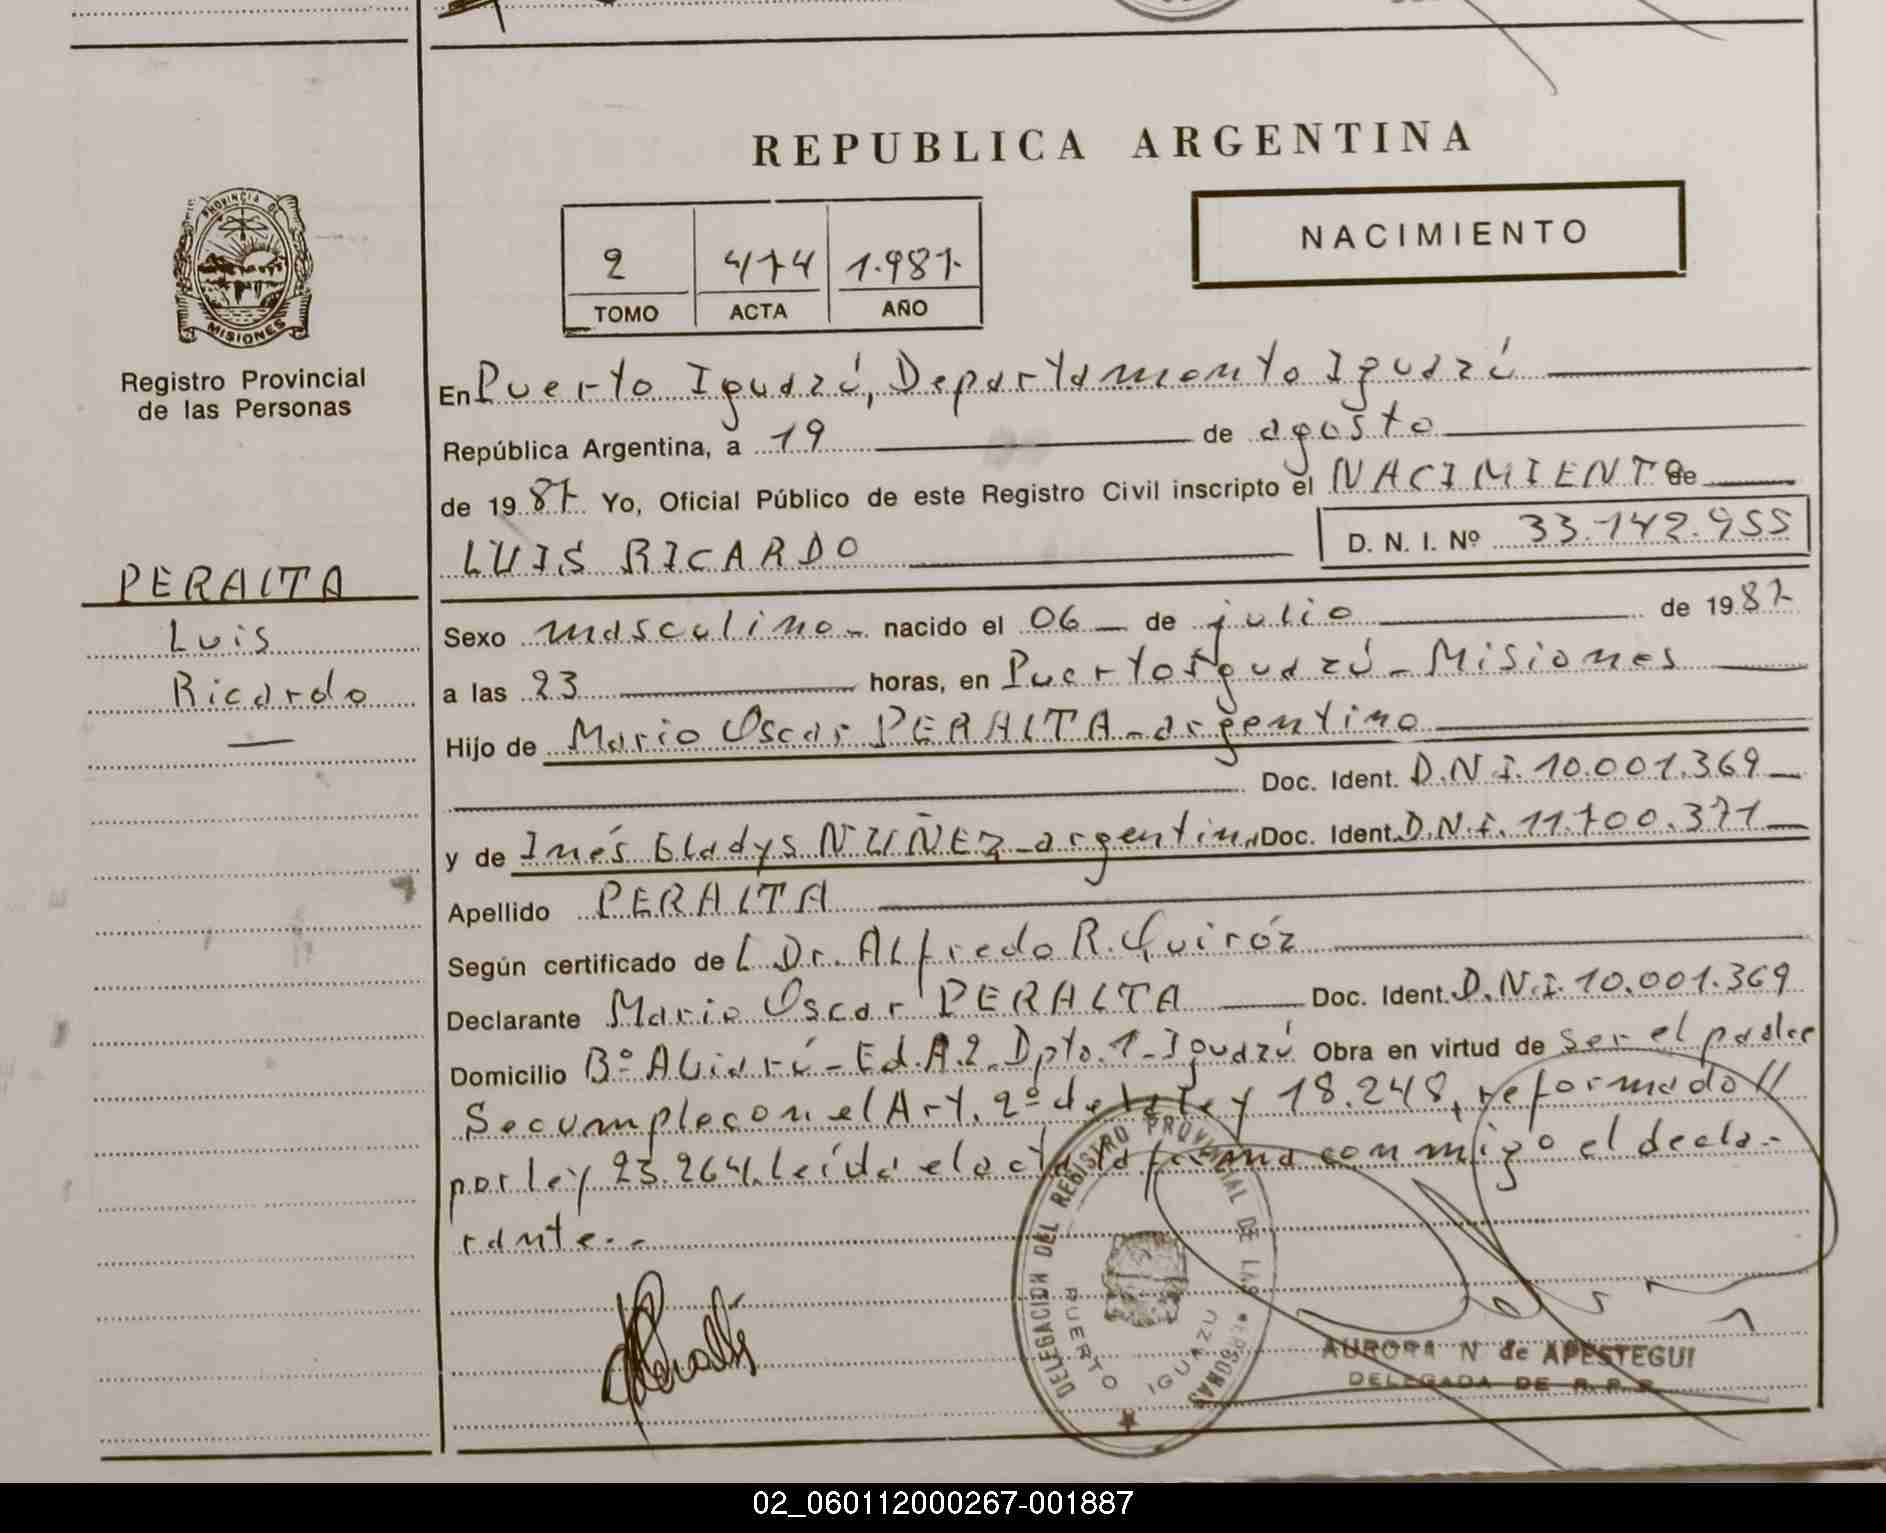 REPUBLICA ARGENTINA
PROVINCIA DE
MISIONES
Registro Provincial
de las Personas
2 474 1.987.
TOMO ACTA AÑO
NACIMIENTO
En Puerto Iguazú, Departamento Iguazú
República Argentina, a 19 de agosto
de 1987 Yo, Oficial Público de este Registro Civil inscripto el NACIMIENTO de
LUIS RICARDO D. N. I. Nº 33.142.955
PERALTA
Luis
Ricardo
Sexo masculino - nacido el 06 - de julio de 1987
a las 23 horas, en Puerto Iguazú - Misiones
Hijo de Mario Oscar PERALTA - argentino
Doc. Ident. D.N.I. 10.001.369
y de Inés Gladys NUÑEZ - argentina Doc. Ident. D.N.I. 11.700.371
Apellido PERALTA
Según certificado de Dr. ALfredo R. Quiróz
Declarante Mario Oscar PERALTA Doc. Ident. D.N.I. 10.001.369
Domicilio Bº - Ed. A.2. Dpto. 1 - Iguazú Obra en virtud de ser el padre
Se cumple con el Art. 2º de la ley 18.248, reformado //
por ley 23.264. Leída el acta la firma conmigo el decla-
rante.-
DELEGACION DEL REGISTRO PROVINCIAL DE LAS PERSONAS
PUERTO IGUAZU
AURORA N de APESTEGUI
DELEGADA DE R.P.P.
02_060112000267-001887